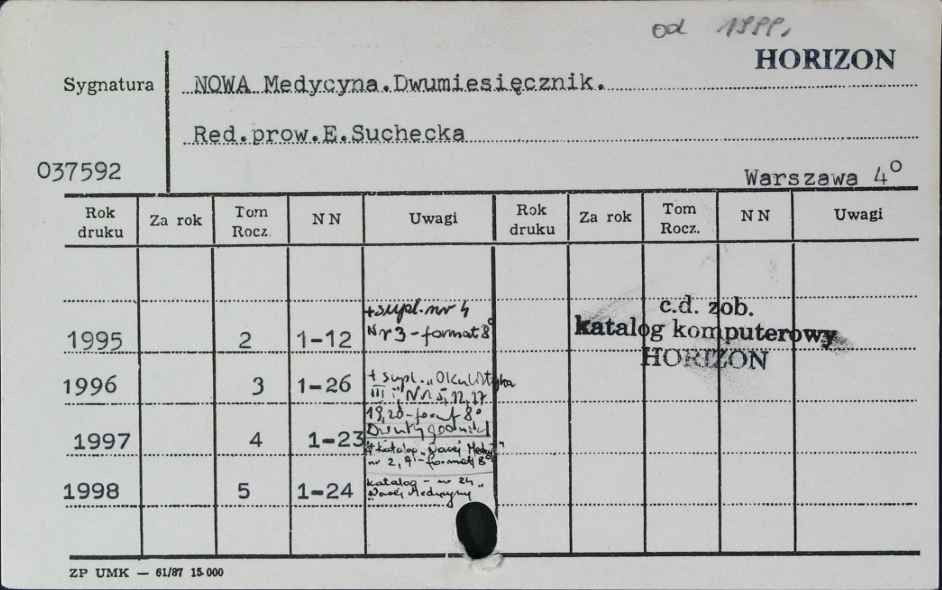 od 1999,
HORIZON
Sygnatura
NOWA Medycyna.Dwumiesięcznik.
Red.prow.E.Suchecka
037592
Warszawa 4°
Rok druku Za rok Tom Rocz. NN Uwagi Rok druku Za rok Tom Rocz. NN Uwagi
+supl. nr 4
1995 2 1-12 Nr 3-format 8°
c.d. zob.
katalog komputerowy
HORIZON
1996 3 1-26 + supl. „Okulistyka
III i, Nr 5, 12, 17
19,20-format 8°
Dwutygodnik
1997 4 1-23 + katalog „Nowej Medyc"
nr 2, 9-format 8°
1998 5 1-24 katalog - nr 24 „
Nowej Medycyny
ZP UMK — 61/87 15 000